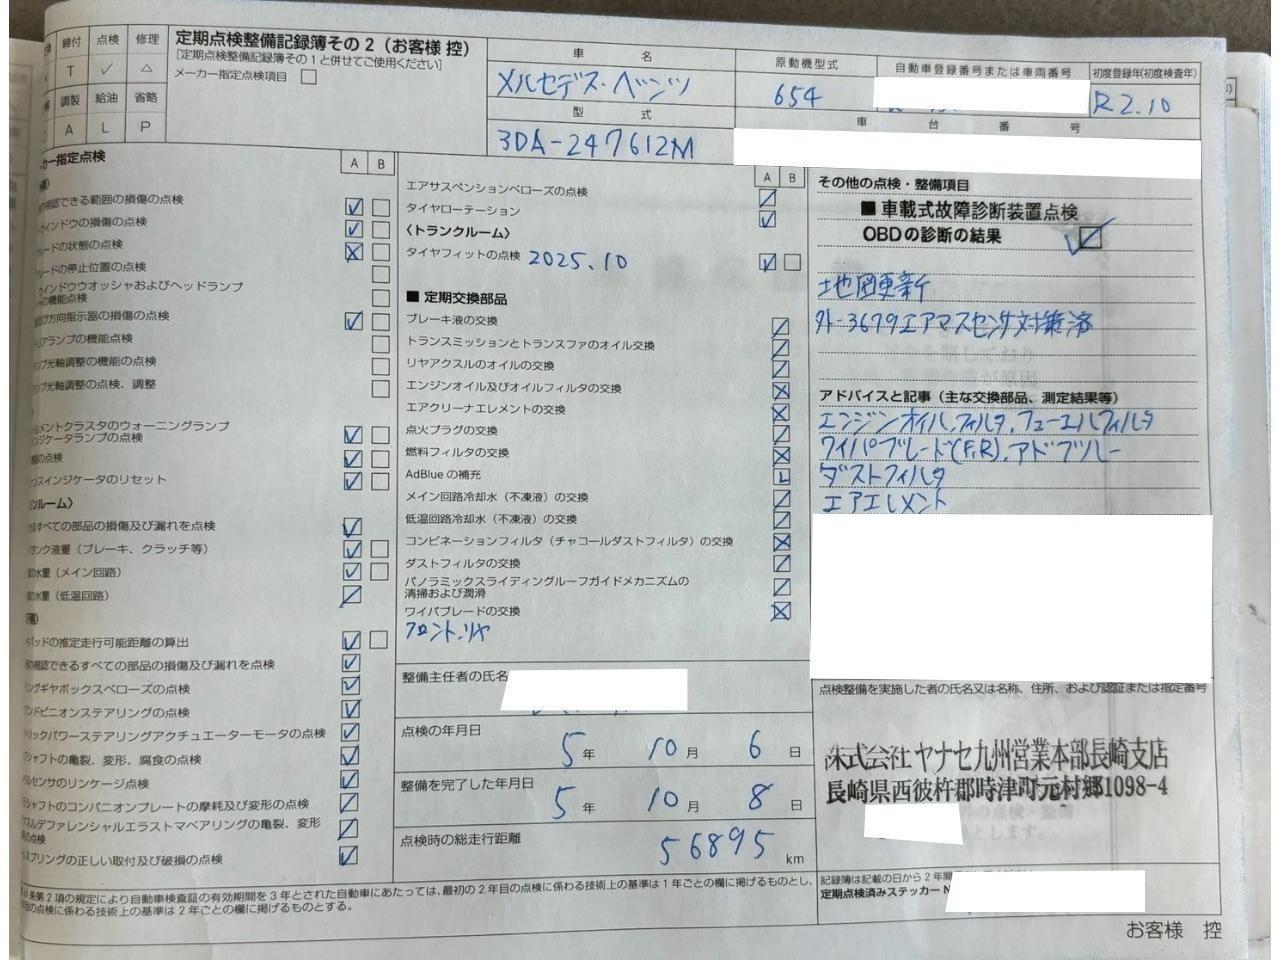 締付 点検 修理
T ✓ △
調製 給油 省略
A L P
定期点検整備記録簿その2（お客様 控）
[定期点検整備記録簿その1と併せてご使用ください]
メーカー指定点検項目
車 名
メルセデス・ベンツ
型 式
3DA-247612M
原動機型式
654
自動車登録番号または車両番号
初度登録年(初度検査年)
R2.10
車 台 番 号
カー指定点検
A B
視認できる範囲の損傷の点検
ウインドウの損傷の点検
レードの状態の点検
レードの停止位置の点検
ウインドウウオッシャおよびヘッドランプ
の機能点検
び方向指示器の損傷の点検
リアランプの機能点検
ンプ光軸調整の機能の点検
ンプ光軸調整の点検、調整
ルメントクラスタのウォーニングランプ
ンジケータランプの点検
の点検
ンスインジケータのリセット
ンルーム〉
るすべての部品の損傷及び漏れを点検
タンク液量（ブレーキ、クラッチ等）
の水量（メイン回路）
の水量（低温回路）
パッドの推定走行可能距離の算出
の視認できるすべての部品の損傷及び漏れを点検
リングギヤボックスベローズの点検
アンドピニオンステアリングの点検
トリックパワーステアリングアクチュエーターモータの点検
シャフトの亀裂、変形、腐食の点検
ベルセンサのリンケージ点検
シャフトのコンパニオンプレートの摩耗及び変形の点検
クスルデファレンシャルエラストマベアリングの亀裂、変形
の点検
スプリングの正しい取付及び破損の点検
A B
エアサスペンションベローズの点検
タイヤローテーション
〈トランクルーム〉
タイヤフィットの点検 2025.10
■ 定期交換部品
ブレーキ液の交換
トランスミッションとトランスファのオイル交換
リヤアクスルのオイルの交換
エンジンオイル及びオイルフィルタの交換
エアクリーナエレメントの交換
点火プラグの交換
燃料フィルタの交換
AdBlue の補充 L
メイン回路冷却水（不凍液）の交換
低温回路冷却水（不凍液）の交換
コンビネーションフィルタ（チャコールダストフィルタ）の交換
ダストフィルタの交換
パノラミックスライディングルーフガイドメカニズムの
清掃および潤滑
ワイパブレードの交換
フロント.リヤ
整備主任者の氏名
点検の年月日
5年 10月 6日
整備を完了した年月日
5年 10月 8日
点検時の総走行距離
56895 km
その他の点検・整備項目
■ 車載式故障診断装置点検
OBDの診断の結果
地図更新
外-3679エアマスセンサ対策済
アドバイスと記事（主な交換部品、測定結果等）
エンジンオイル,フィルタ,フューエルフィルタ
ワイパブレード(F,R),アドブルー
ダストフィルタ
エアエレメント
点検整備を実施した者の氏名又は名称、住所、および認証または指定番号
株式会社ヤナセ九州営業本部長崎支店
長崎県西彼杵郡時津町元村郷1098-4
記録簿は記載の日から2年間
定期点検済みステッカー N
条第2項の規定により自動車検査証の有効期間を3年とされた自動車にあたっては、最初の2年目の点検に係わる技術上の基準は1年ごとの欄に掲げるものとし、
目の点検に係わる技術上の基準は2年ごとの欄に掲げるものとする。
お客様 控